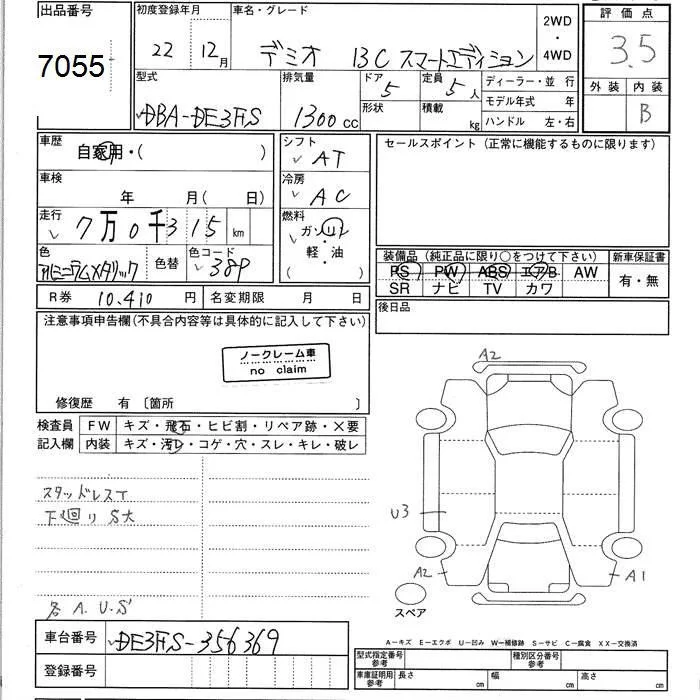 出品番号
7055
初度登録年月
22 12月
車名・グレード
デミオ 13C スマートエディション
2WD
・
4WD
評価点
3.5
外装 内装
B
型式
DBA-DE3FS
排気量
1300cc
ドア
5
定員
5人
形状
積載
kg
ディーラー・並行
モデル年式 年
ハンドル 左・右
車歴
自家用・( )
車検
年 月(日)
走行
7万0千315km
色
アルミニウムメタリック
色替
色コード
38P
シフト
AT
冷房
AC
燃料
ガソリン
軽・油
( )
セールスポイント(正常に機能するものに限ります)
装備品(純正品に限り○をつけて下さい)
PS PW ABS エアB AW
SR ナビ TV カワ
新車保証書
有・無
R券 10,410円
名変期限 月 日
後日品
注意事項申告欄(不具合内容等は具体的に記入して下さい)
ノークレーム車
no claim
修復歴 有〔箇所 〕
検査員
記入欄
FW キズ・飛石・ヒビ割・リペア跡・×要
内装 キズ・汚レ・コゲ・穴・スレ・キレ・破レ
スタッドレスT
下廻りS大
各A.U.S
A2
U3
A2
A1
スペア
車台番号
DE3FS-356369
登録番号
A-キズ E-エクボ U-凹み W-補修跡 S-サビ C-腐食 XX-交換済
型式指定番号
参考
種別区分番号
参考
車庫証明用
参考
長さ cm
幅 cm
cm